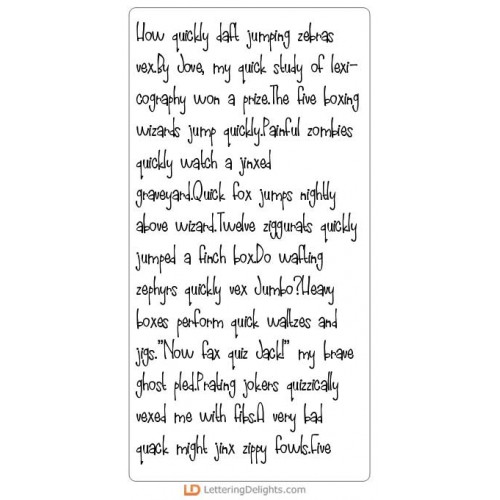 How quickly daft jumping zebras
vex.By Jove, my quick study of lexi-
cography won a prize.The five boxing
wizards jump quickly.Painful zombies
quickly watch a jinxed
graveyard.Quick fox jumps nightly
above wizard.Twelve ziggurats quickly
jumped a finch box.Do wafting
zephyrs quickly vex Jumbo?Heavy
boxes perform quick waltzes and
jigs."Now fax quiz Jack!" my brave
ghost pled.Prating jokers quizzically
vexed me with fibs.A very bad
quack might jinx zippy fowls.Five
LD LetteringDelights.com